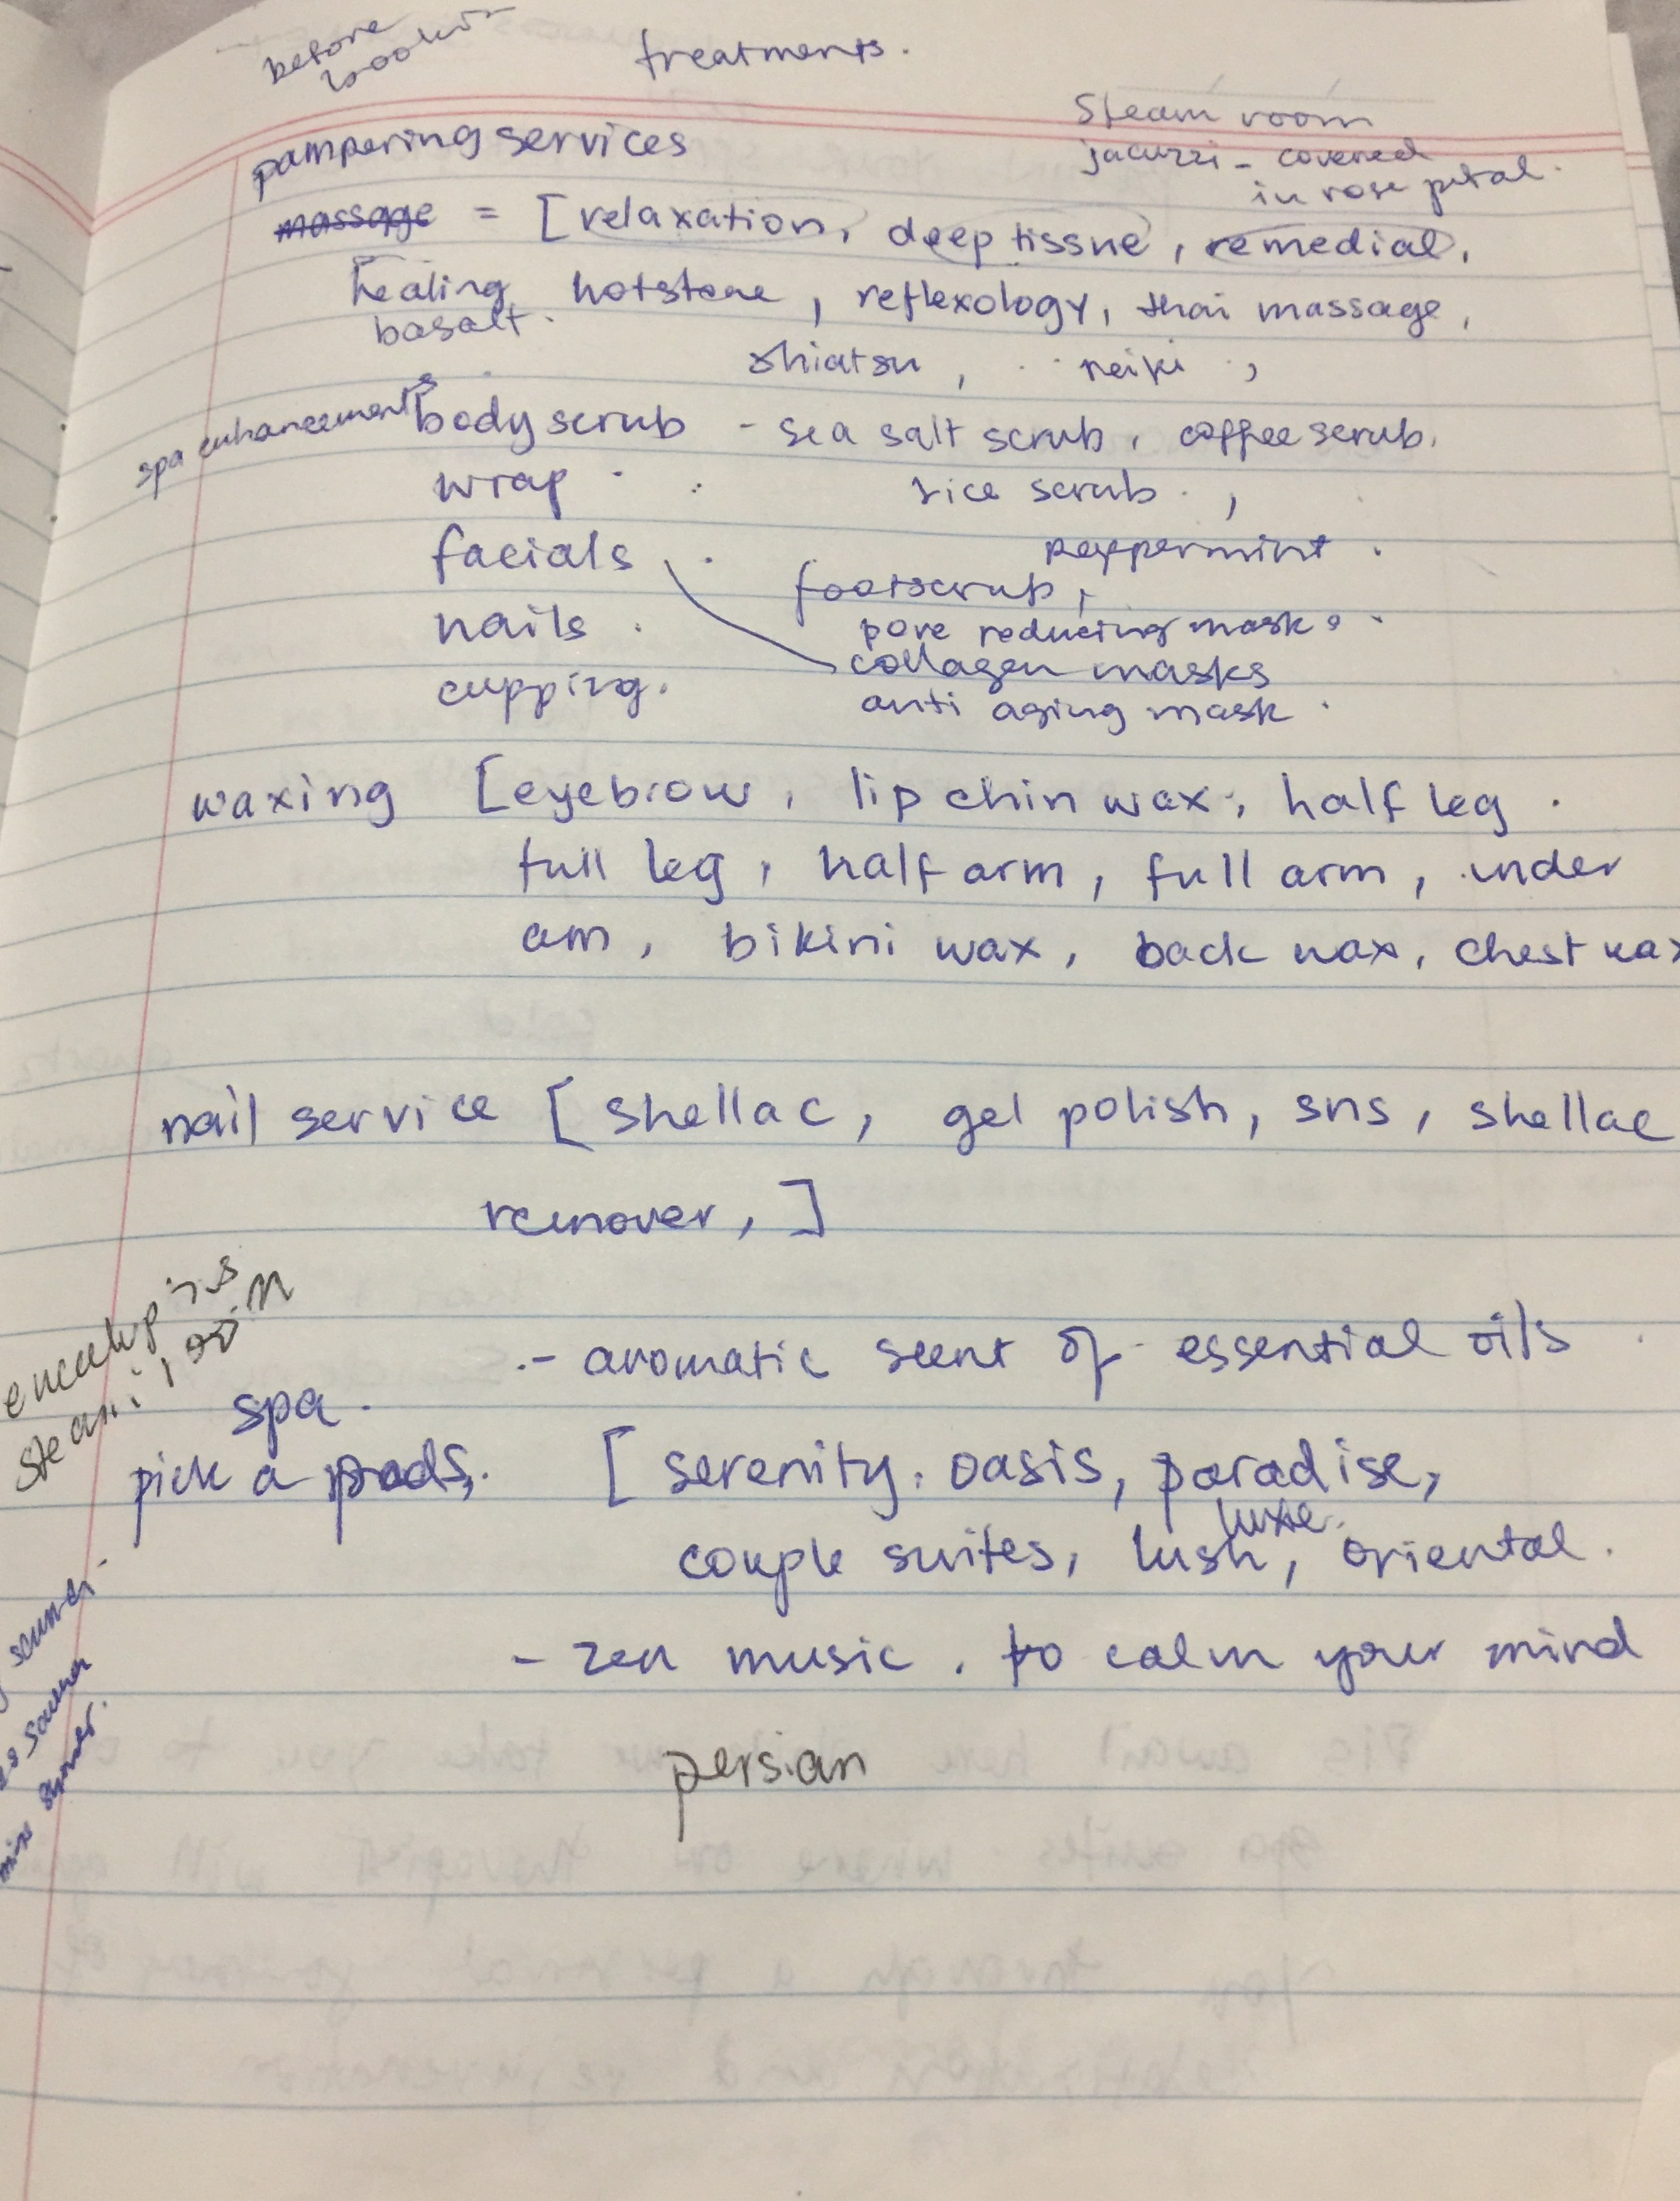 before
treatments.
Steam room
jacuzzi - covered
in rose petal.
pampering services
massage = [relaxation, deep tissue, remedial,
healing hotstone, reflexology, thai massage,
basalt.
shiatsu, reiki,
spa enhancements
body scrub - sea salt scrub, coffee scrub.
wrap rice scrub,
facials peppermint.
footscrub,
nails. pore reducing masks.
collagen masks
cupping. anti aging mask.
waxing [eyebrow, lip chin wax, half leg.
full leg, half arm, full arm, under
am, bikini wax, back wax, chest wax
nail service [shellac, gel polish, sns, shellac
remover, ]
- aromatic scent of essential oils
spa.
pick a pods, [serenity, oasis, paradise,
luxe
couple suites, lush, oriental.
- zen music. to calm your mind
persian